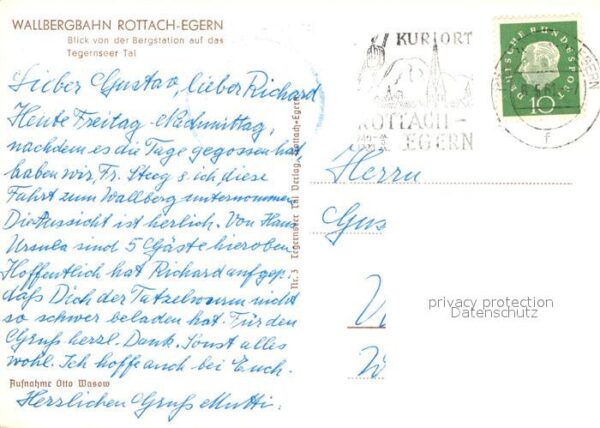 WALLBERGBAHN ROTTACH-EGERN
Blick von der Bergstation auf das
Tegernseer Tal
Lieber Gustav, lieber Richard
Heute Freitag Nachmittag,
nachdem es die Tage gegossen hat
haben wir, Fr. & ich, diese
Fahrt zum Wallberg unternommen
Die Aussicht ist herlich. Von Haus
Ursula sind 5 Gäste hieroben
Hoffentlich hat Richard aufgep.
daß Dich der Tatzelwurm nicht
so schwer beladen hat. Für den
Gruß herzl. Dank. Sonst alles
wohl. Ich hoffe auch bei Euch.
Aufnahme Otto Wasow
Herzlichen Gruß Mutti.
Nr. 3 Tegernseer Tal Verlag, Rottach-Egern
KURORT
ROTTACH-
EGERN
DEUTSCHE BUNDESPOST
10
f
Herrn
Gus
privacy protection
Datenschutz